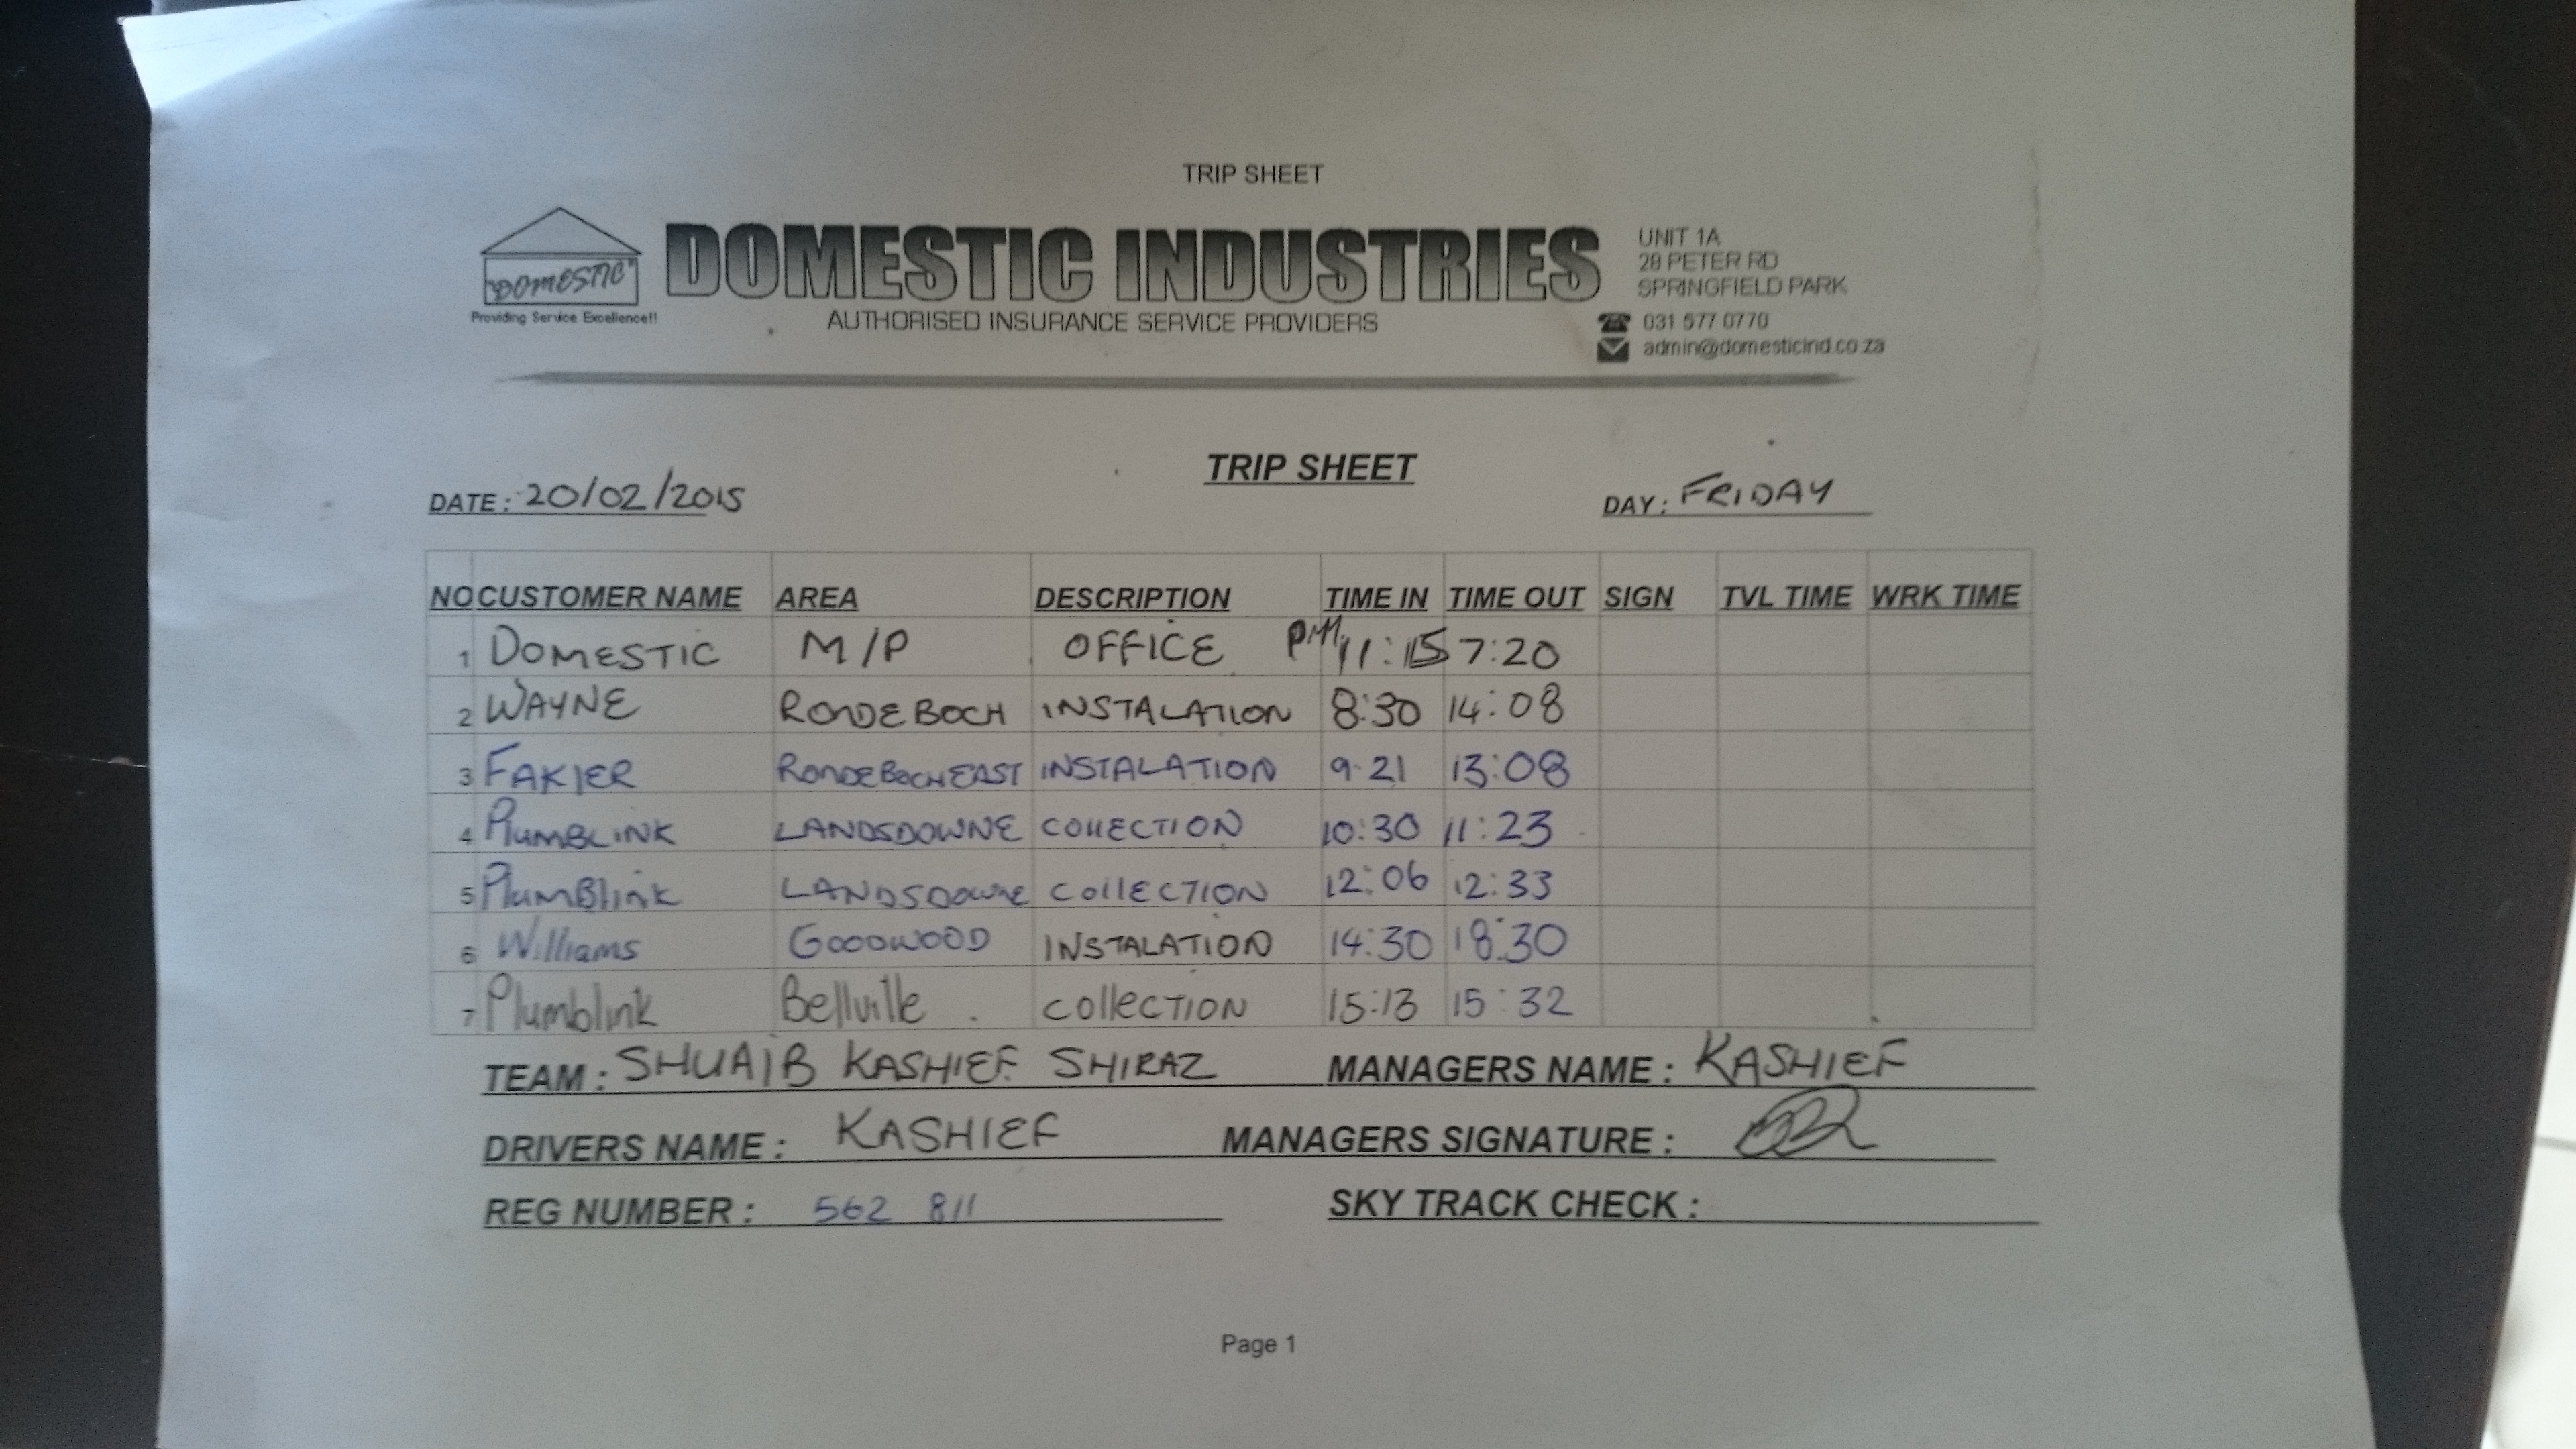 TRIP SHEET
"DOMESTIC"
Providing Service Excellence!!
DOMESTIC INDUSTRIES
AUTHORISED INSURANCE SERVICE PROVIDERS
UNIT 1A
28 PETER RD
SPRINGFIELD PARK
031 577 0770
admin@domesticind.co.za
TRIP SHEET
DATE : 20/02/2015 DAY : FRIDAY
NO CUSTOMER NAME AREA DESCRIPTION TIME IN TIME OUT SIGN TVL TIME WRK TIME
1 DOMESTIC M/P OFFICE PM 11:15 7:20
2 WAYNE RONDEBOCH INSTALATION 8:30 14:08
3 FAKIER RONDEBOCH EAST INSTALATION 9:21 13:08
4 PlumBLINK LANDSDOWNE COllECTION 10:30 11:23
5 PlumBlink LANDSDOWNE COllECTION 12:06 12:33
6 Williams GOODWOOD INSTALATION 14:30 18:30
7 Plumblink Bellville . COllECTION 15:13 15:32
TEAM : SHUAIB KASHIEF SHIRAZ MANAGERS NAME : KASHIEF
DRIVERS NAME : KASHIEF MANAGERS SIGNATURE :
REG NUMBER : 562 811 SKY TRACK CHECK :
Page 1